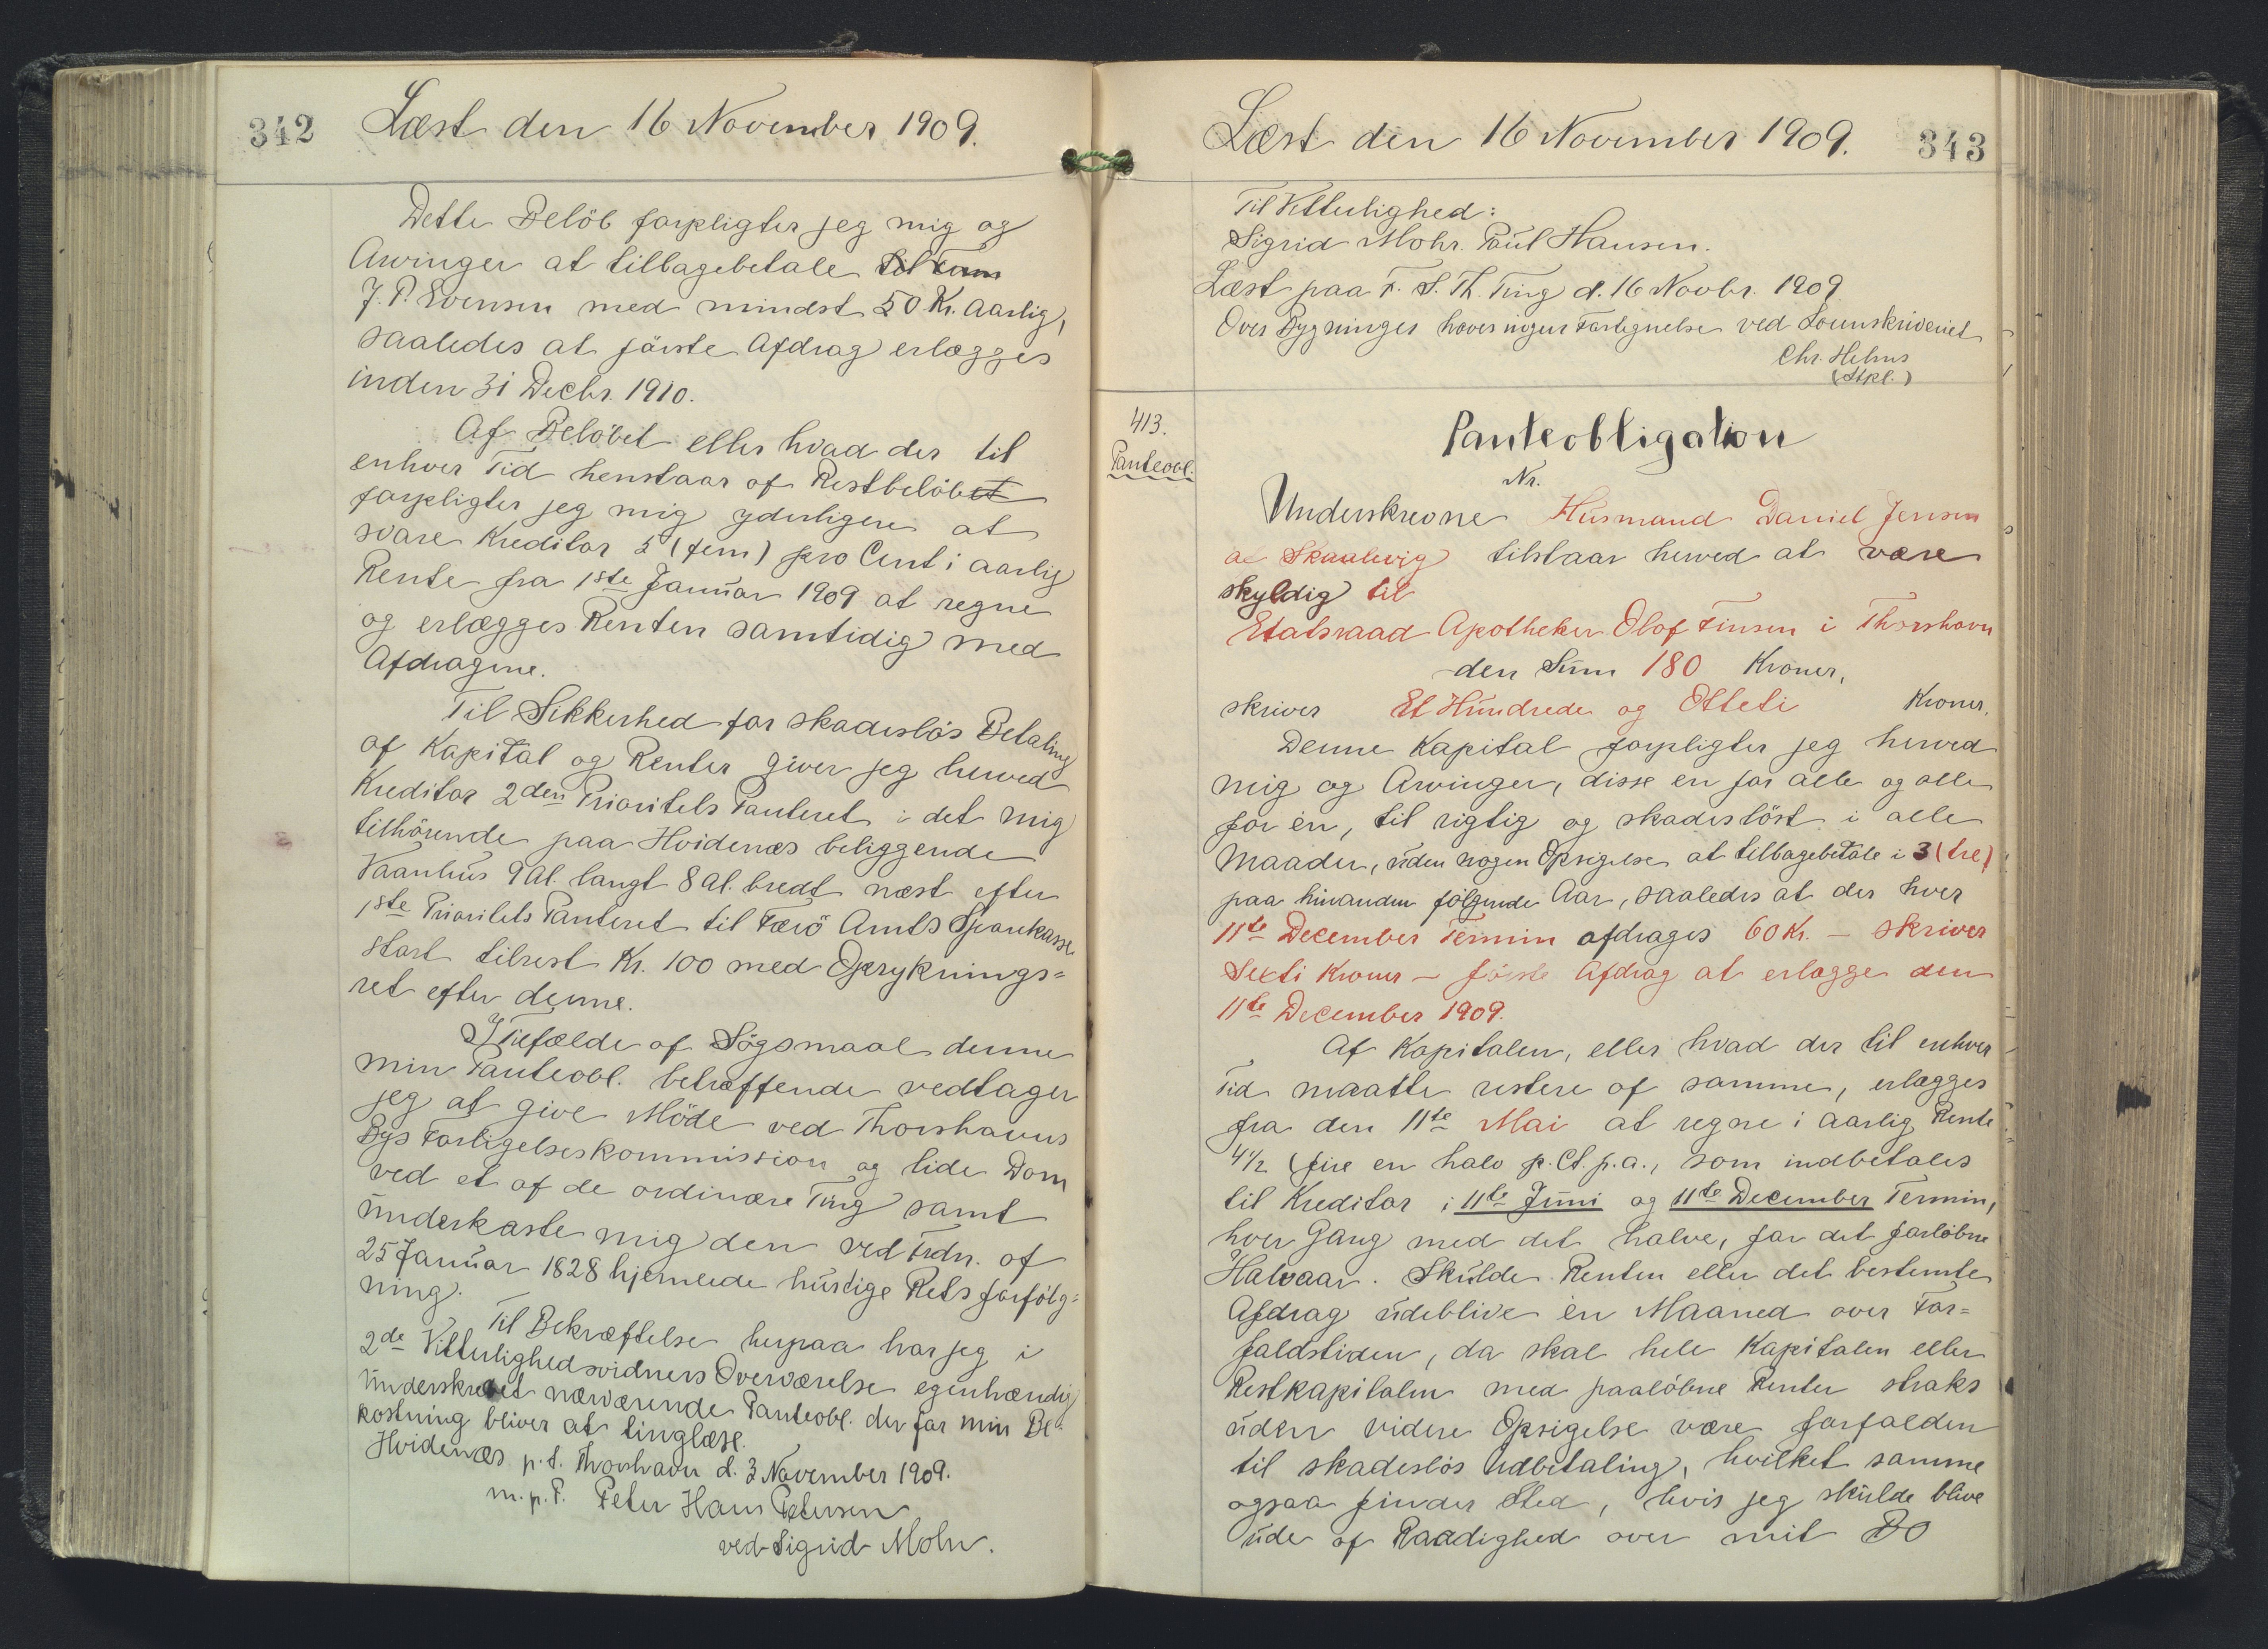 342
Læst den 16 November 1909.
Dette Beløb forpligter jeg mig og
Arvinger at tilbagebetale
J. P. Evensen med mindst 50 Kr. Aarlig,
saaledes at første Afdrag erlægges
inden 31 Decbr. 1910.
Af Beløbet eller hvad der til
enhver Tid henstaar af Restbeløbet
forpligter jeg mig yderligere at
svare Kreditor 5 (fem) pro Cent i aarlig
Rente fra 1ste Januar 1909 at regne
og erlægges Renten samtidig med
Afdragene.
Til Sikkerhed for skadesløs Betaling
af Kapital og Renter giver jeg herved
Kreditor 2den Prioritets Panteret i det mig
tilhørende paa Hvidenæs beliggende
Vaanhus 9 Al. langt 8 Al. bredt næst efter
1ste Prioritets Panteret til Færø Amts Sparekasse
stort tilrest Kr. 100 med Opryknings=
ret efter denne.
I Tilfælde af Søgsmaal denne
min Panteobl. betræffende vedtager
jeg at give Møde ved Thorshavns
Bys Forligelseskommission og lide Dom
ved et af de ordinære Ting samt
underkaste mig den ved Frdn. af
25 Januar 1828 hjemlede hurtige Retsforfølg=
ning.
Til Bekræftelse herpaa har jeg i
2de Vitterlighedsvidners Overværelse egenhændig
underskrevet nærværende Panteobl. der for min Be=
kostning bliver at tinglæse.
Hvidenæs p. t. Thorshavn d. 3 November 1909.
m. p. P. Peter Hans Petersen
ved Sigrid Mohr.
Læst den 16 November 1909.
343
Til Vitterlighed:
Sigrid Mohr. Paul Hansen.
Læst paa F. S. Th. Ting d. 16 Novbr. 1909
Over Bygninger haves ingen Fortegnelse ved Sorenskriveriet
Chr. Helms
(Stpl.)
413.
Panteobl.
Panteobligation
Nr.
Underskrevne Husmand Daniel Jensen
af Skaalevig tilstaar herved at være
skyldig til
Etatsraad Apotheker Olaf Finsen i Thorshavn
den Sum 180 Kroner,
skriver Et Hundrede og Otteti Kroner.
Denne Kapital forpligter jeg herved
mig og Arvinger, disse en for alle og alle
for én, til rigtig og skadesløst i alle
Maader, uden nogen Opsigelse at tilbagebetale i 3 (tre)
paa hinanden følgende Aar, saaledes at der hver
11te December Termin afdrages 60 Kr. – skriver
Sexti Kroner – første Afdrag at erlægge den
11te December 1909.
Af Kapitalen, eller hvad der til enhver
Tid maatte restere af samme, erlægges
fra den 11te Mai at regne i aarlig Rente
4½ (fire en halv p. Ct. p. a., som indbetales
til Kreditor i 11te Juni og 11te December Termin,
hver Gang med det halve, for det forløbne
Halvaar. Skulde Renten eller det bestemte
Afdrag udeblive én Maaned over For=
faldstiden, da skal hele Kapitalen eller
Restkapitalen med paaløbne Renter straks
uden videre Opsigelse være forfalden
til skadesløs Udbetaling, hvilket samme
ogsaa finder Sted, hvis jeg skulde blive
ude af Raadighed over mit Bo